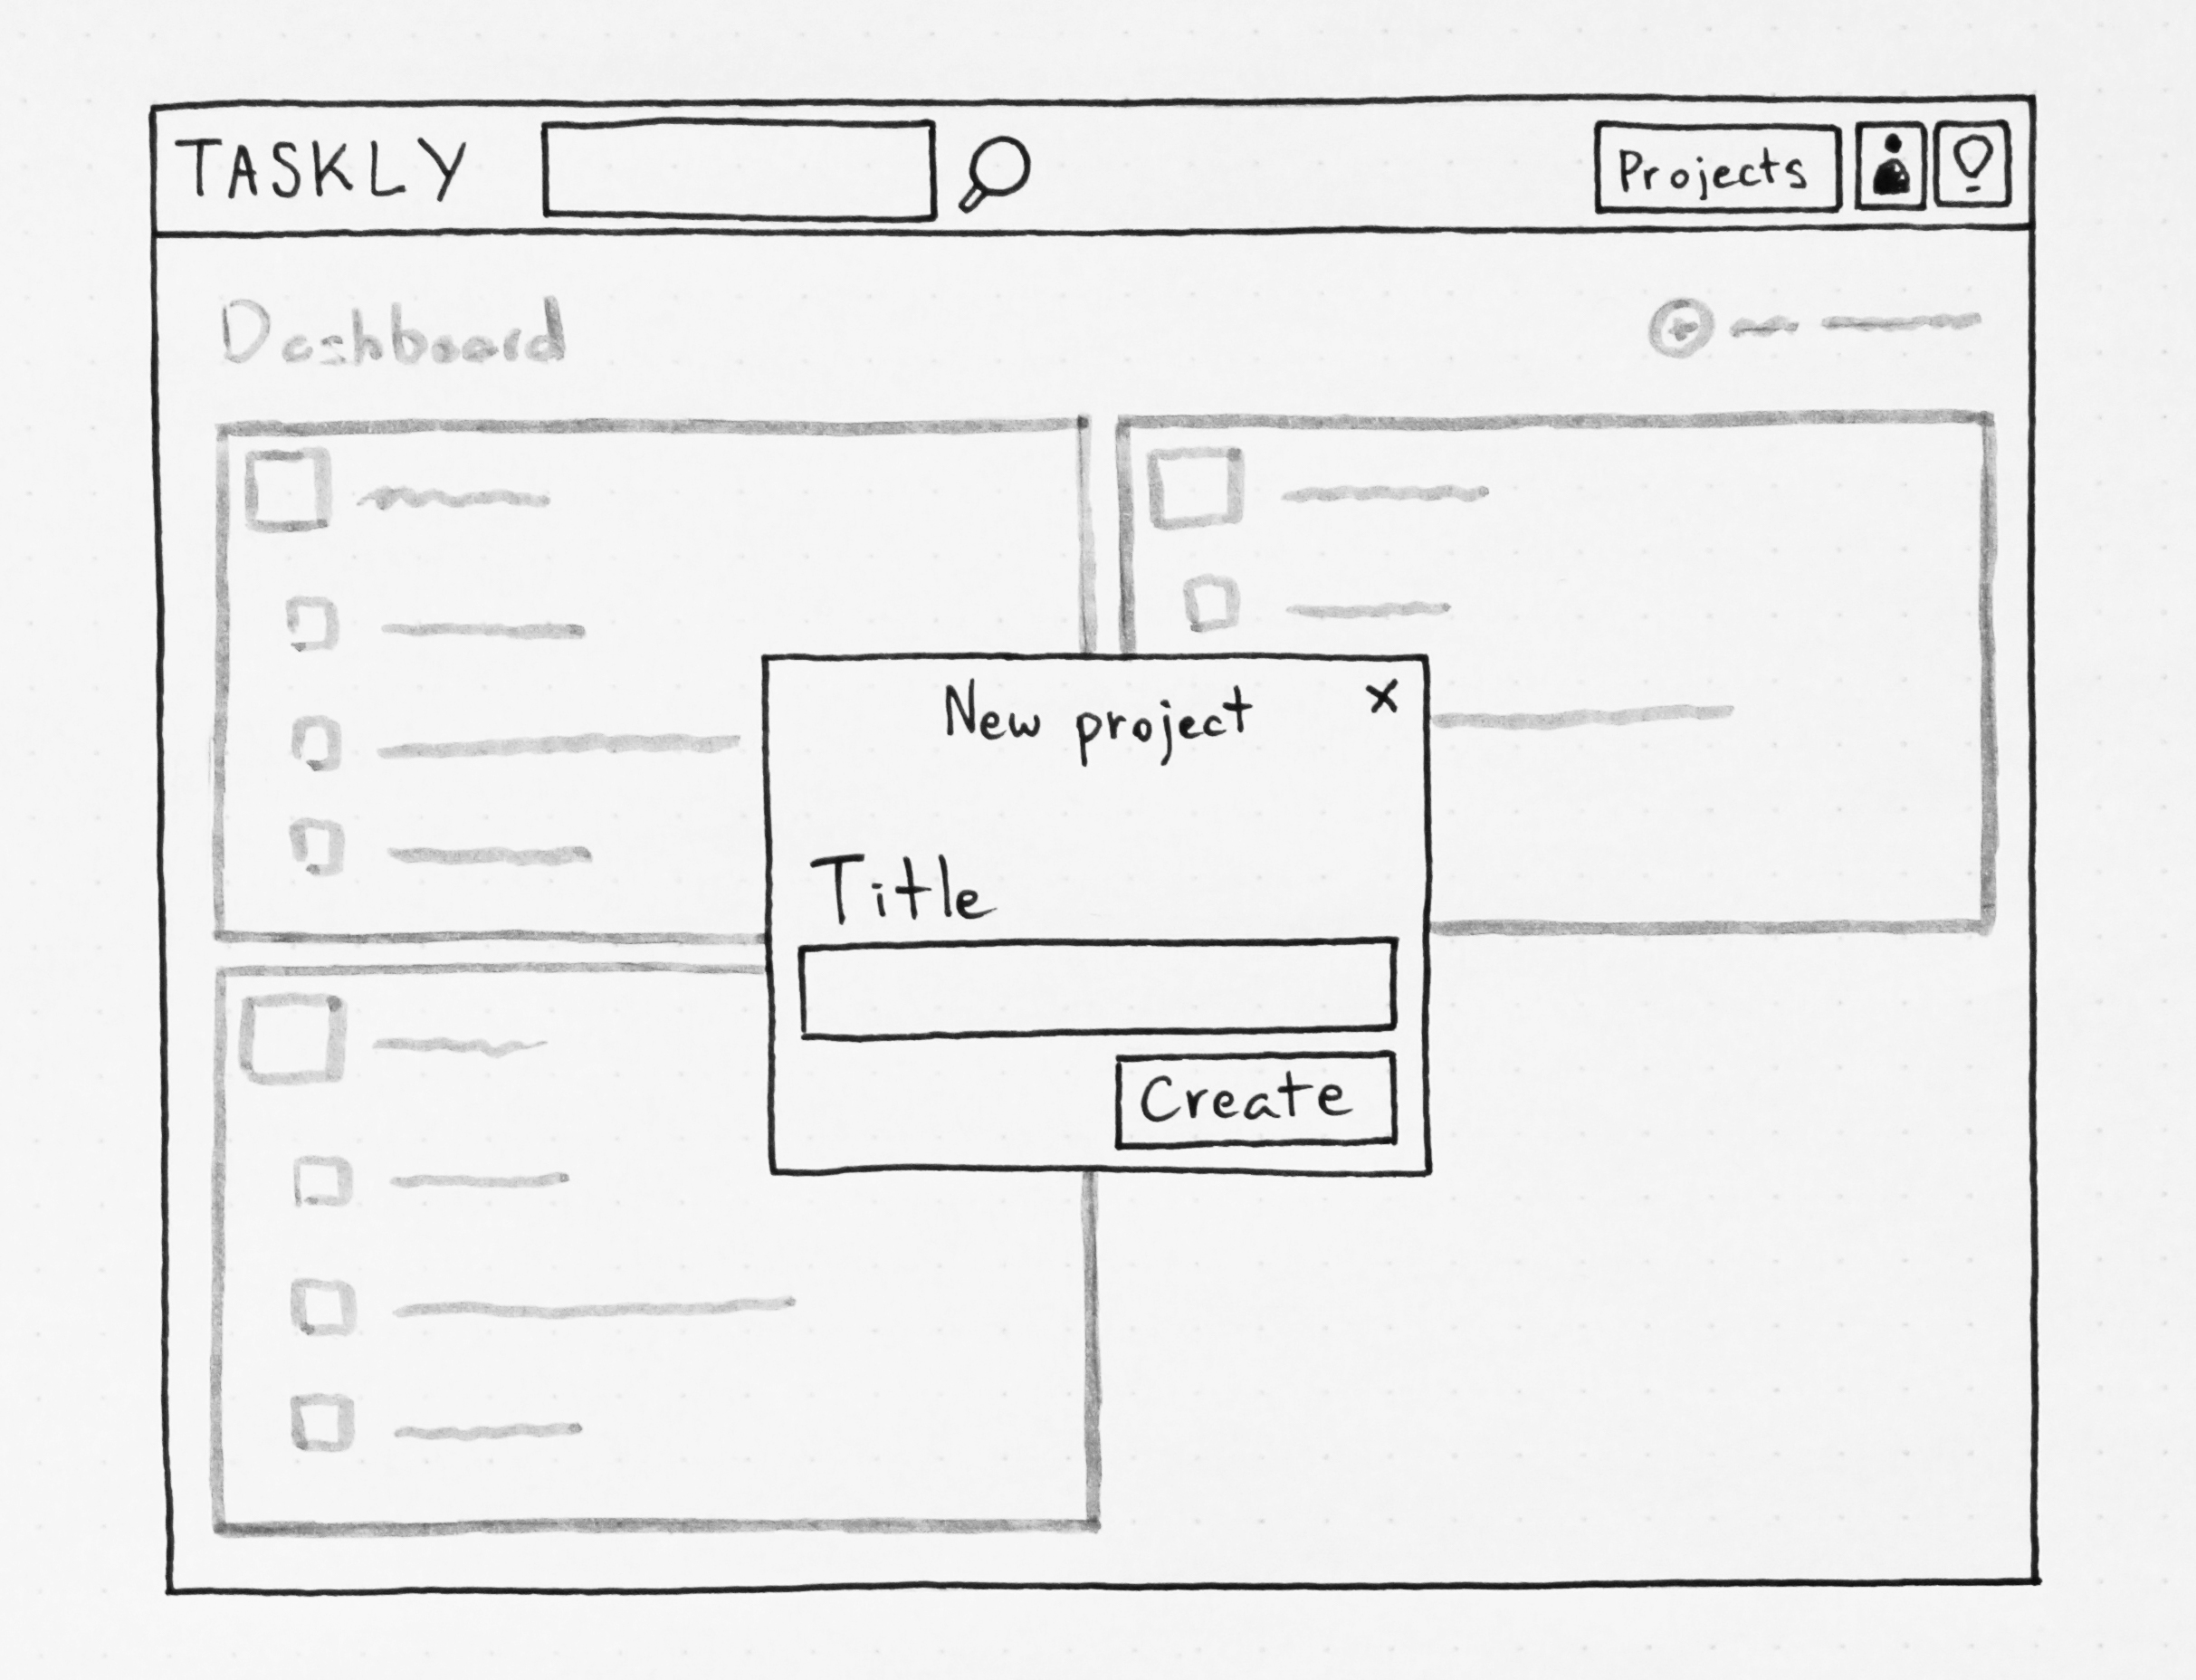 TASKLY
Projects
Dashboard
New project
x
Title
Create